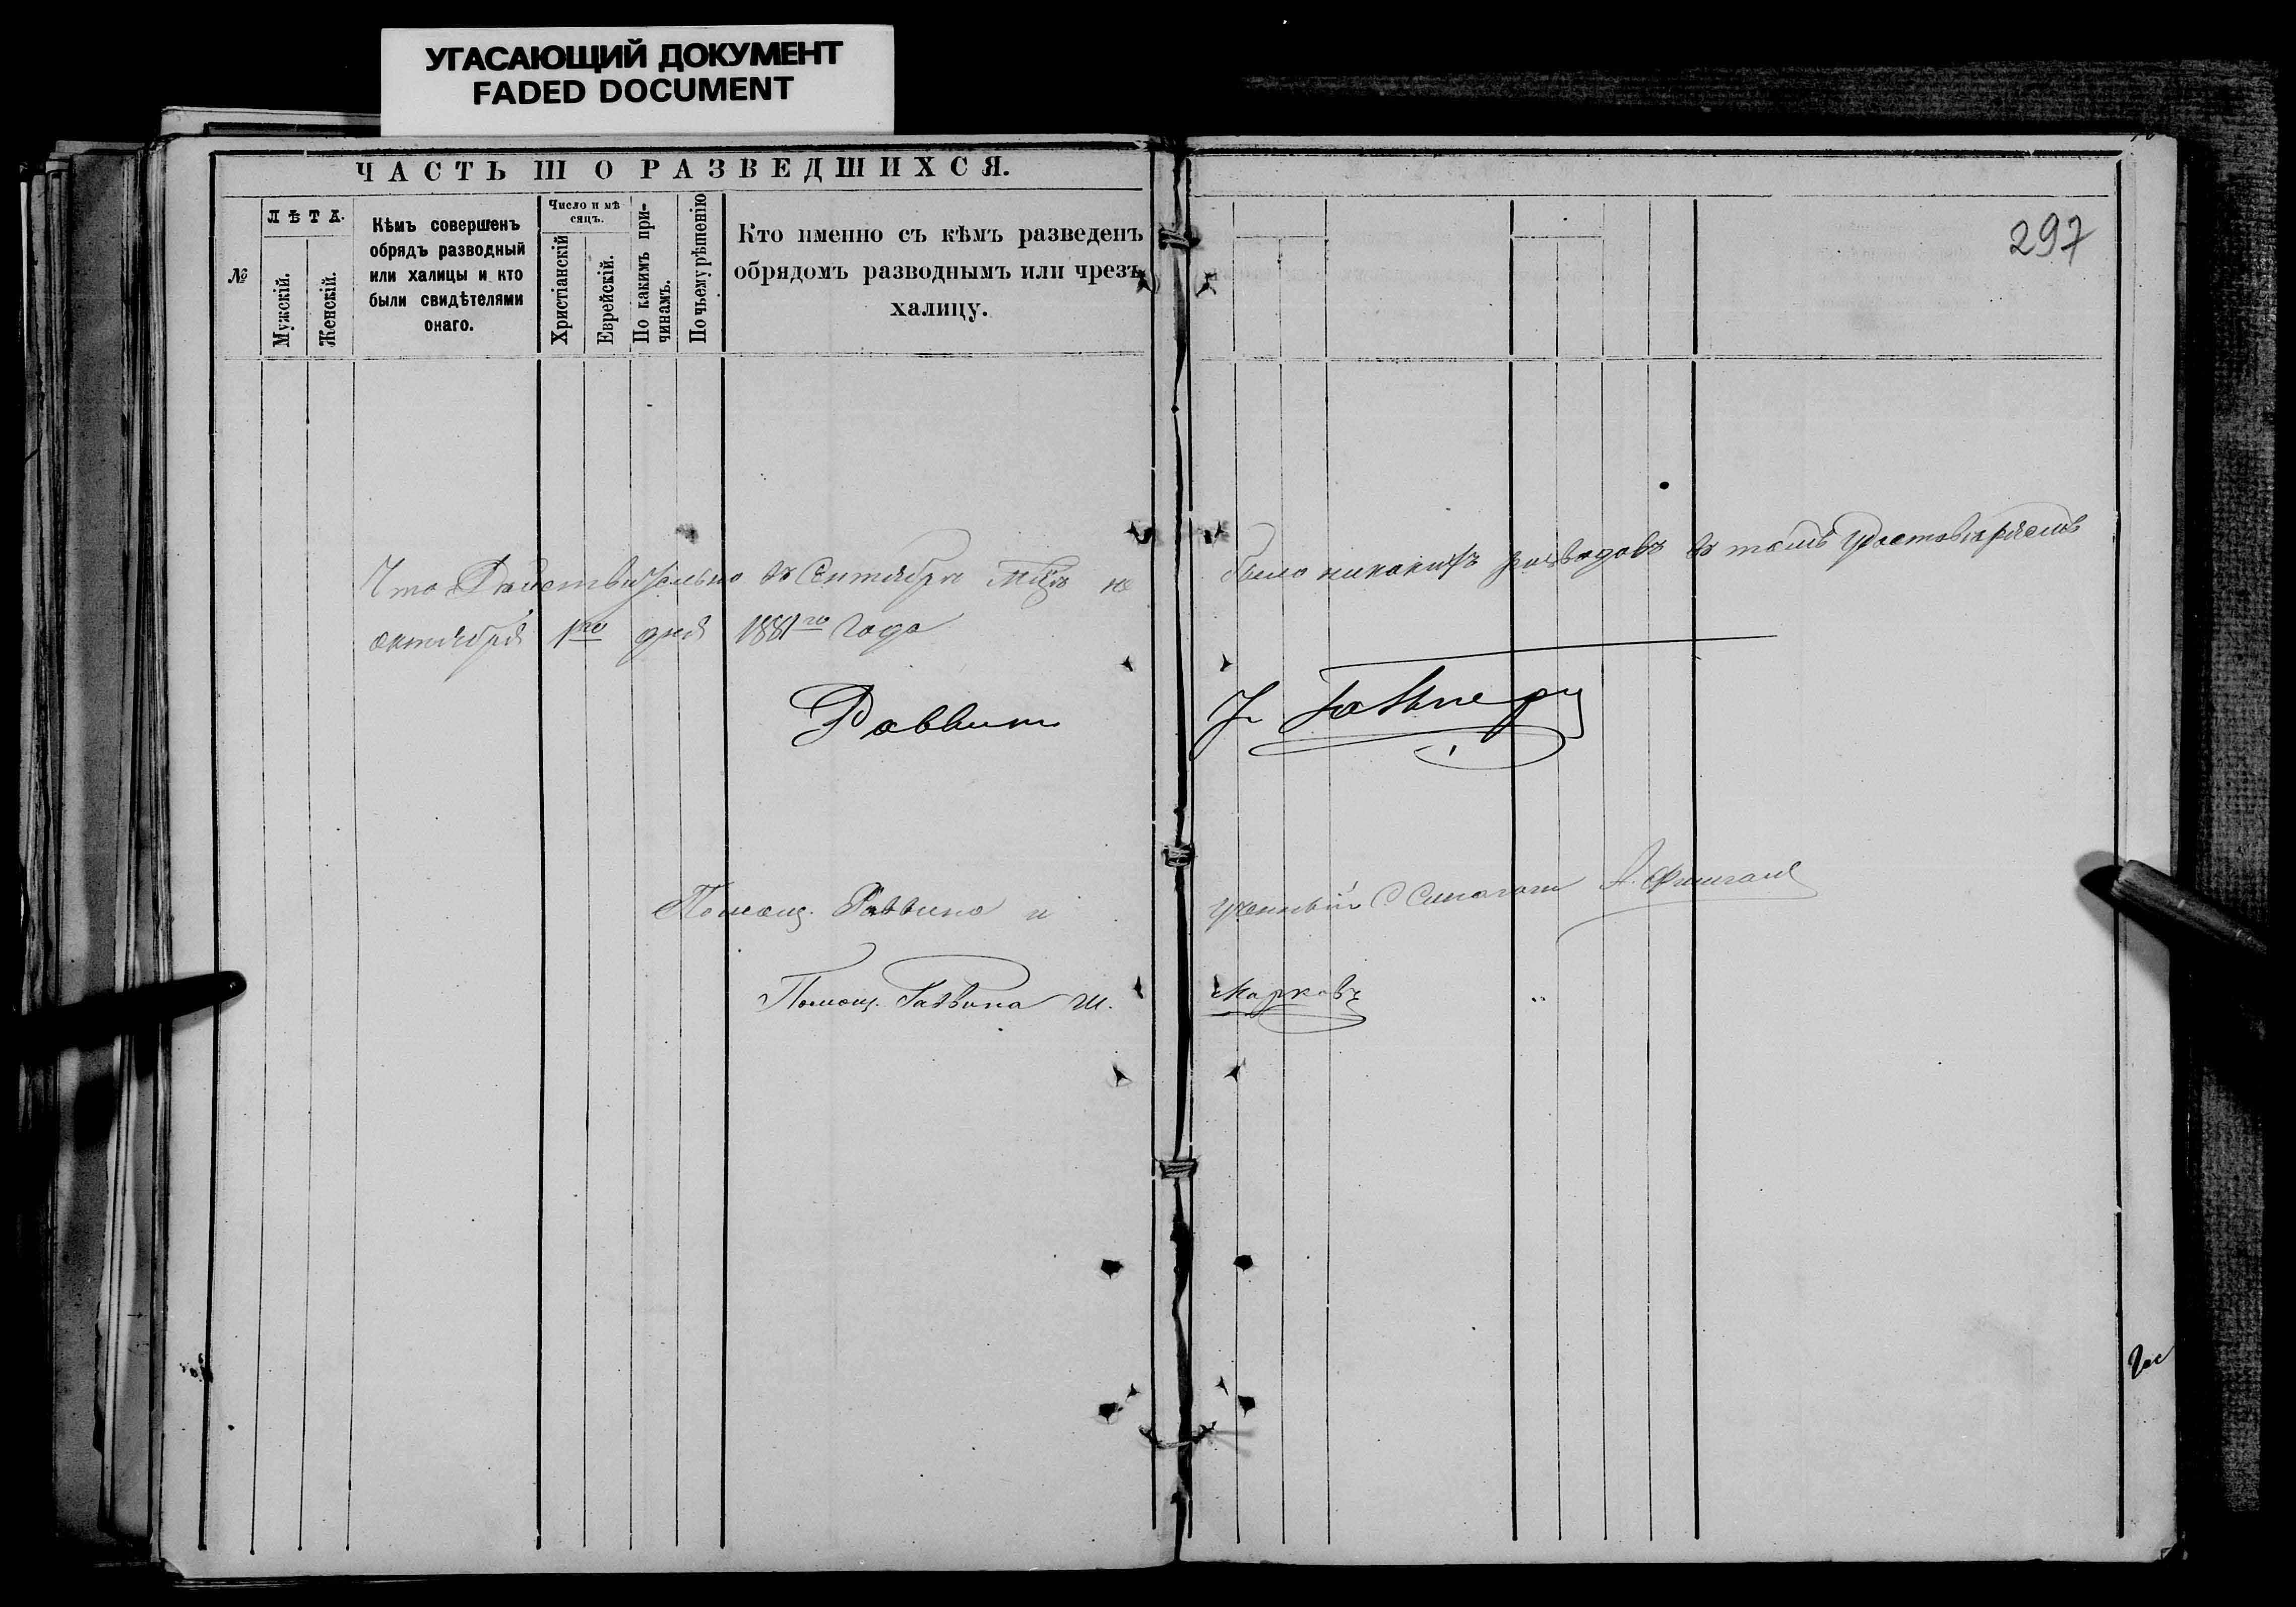 УГАСАЮЩИЙ ДОКУМЕНТ
FADED DOCUMENT
ЧАСТЬ III О РАЗВЕДШИХСЯ.
№
ЛѢТА.
Мужскій.
Женскій.
Кѣмъ совершенъ
обрядъ разводный
или халицы и кто
были свидѣтелями
онаго.
Число и мѣ
сяцъ.
Христіанскій
Еврейскій.
По какимъ при-
чинамъ.
По чьему рѣшенію
Кто именно съ кѣмъ разведенъ
обрядомъ разводнымъ или чрезъ
халицу.
297
Что Действительно въ Сентябрѣ М-цѣ не было никакихъ разводовъ въ томъ удостовѣряемъ
октября 1го дня 1881го года
Раввин
Помощ. Раввина и ученный
Помощ. Раввина Ш. Марковъ